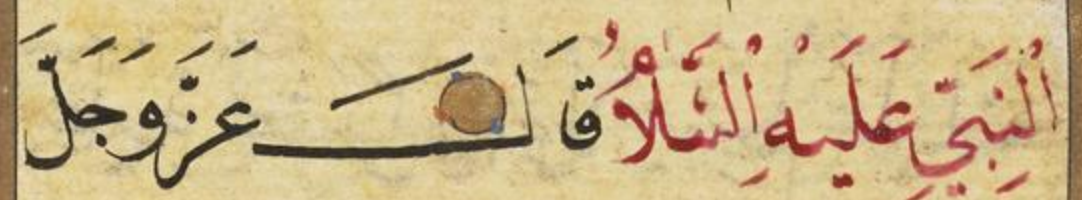 اَلنَّبِيِّ عَلَيْهِ اَلسَّلَامُ قَالَ عَزَّ وَجَلَّ